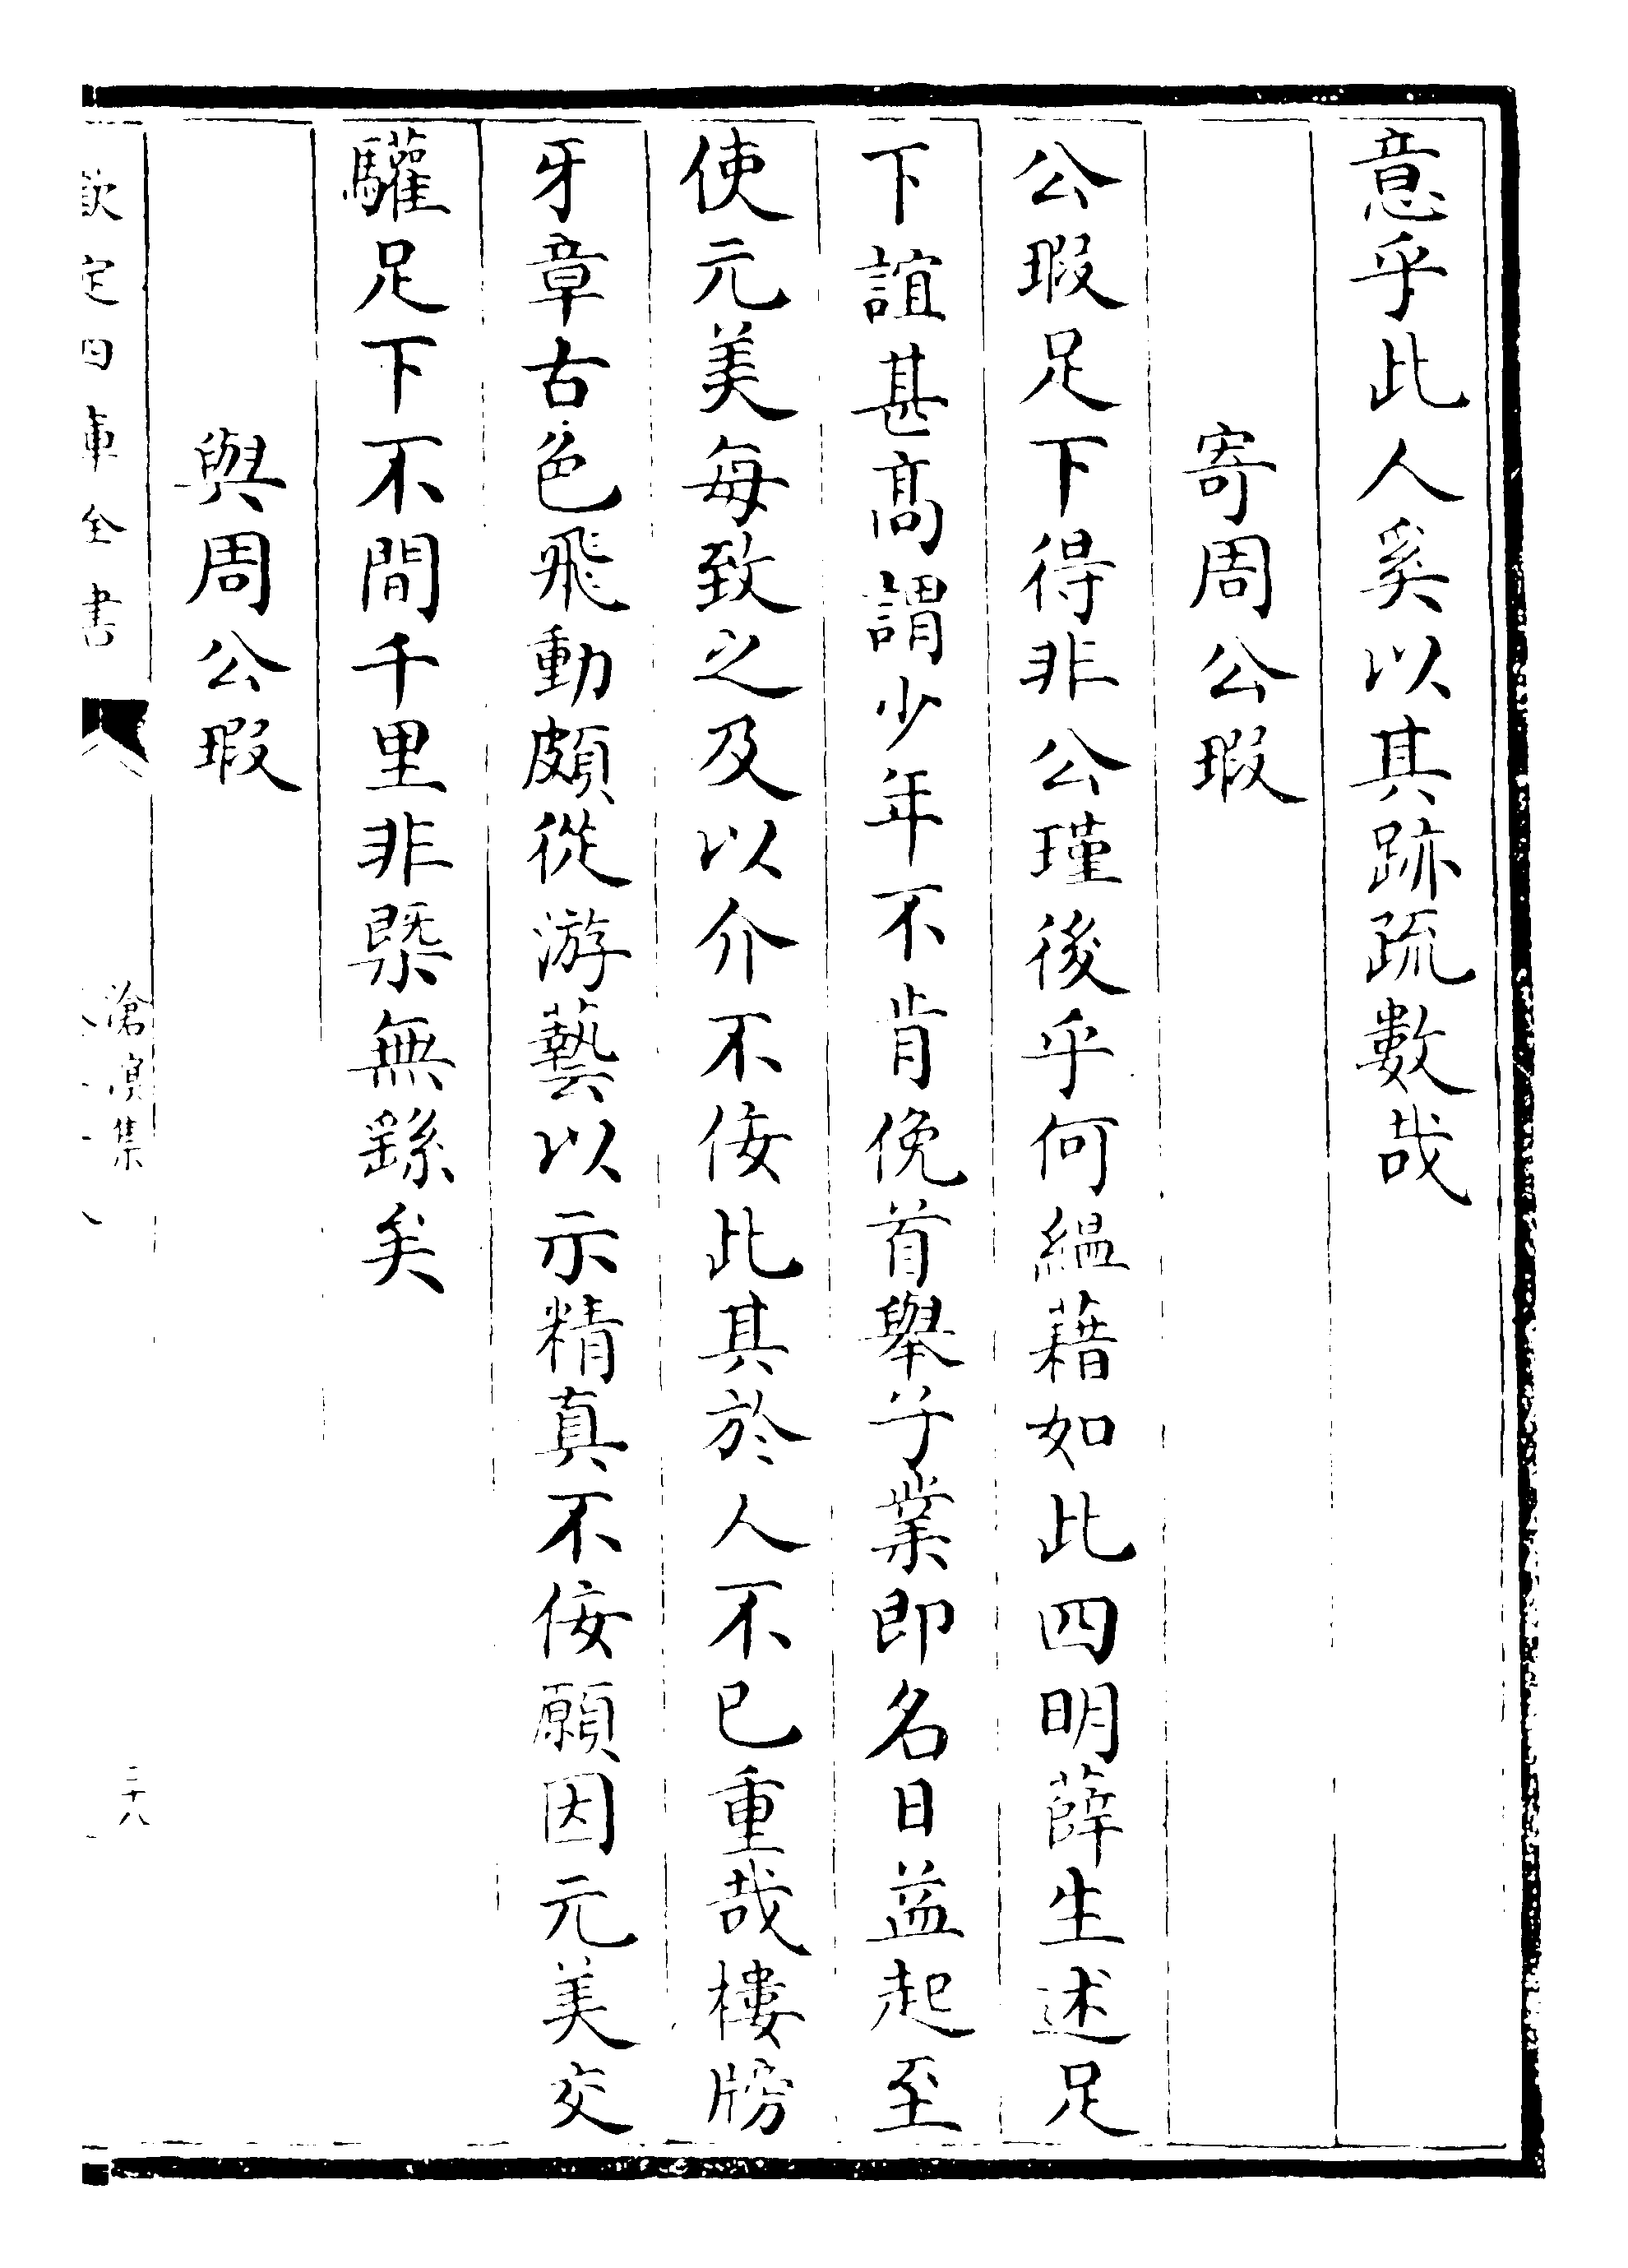 意乎此人奚以其跡疏數哉
寄周公瑕
公瑕足下得非公瑾後乎何緼藉如此四明薛生述足
下誼甚髙謂少年不肯俛首舉子業即名日益起至
使元美每致之及以介不佞此其於人不已重哉樓牓
牙章古色飛動頗從游藝以示精真不佞願因元美交
驩足下不間千里非槩無繇矣
與周公瑕
欽定四庫全書
滄溟集
二十八